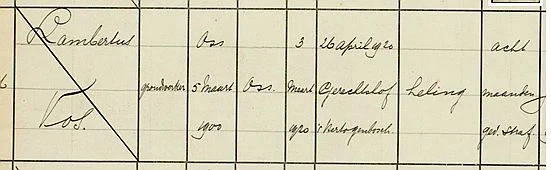 Lambertus
Vos.
grondwerker
Oss
5 Maart
1900
Oss.
3
Maart
1920
26 april 1920
Gerechtshof
's Hertogenbosch.
heling
acht
maanden
gev. straf